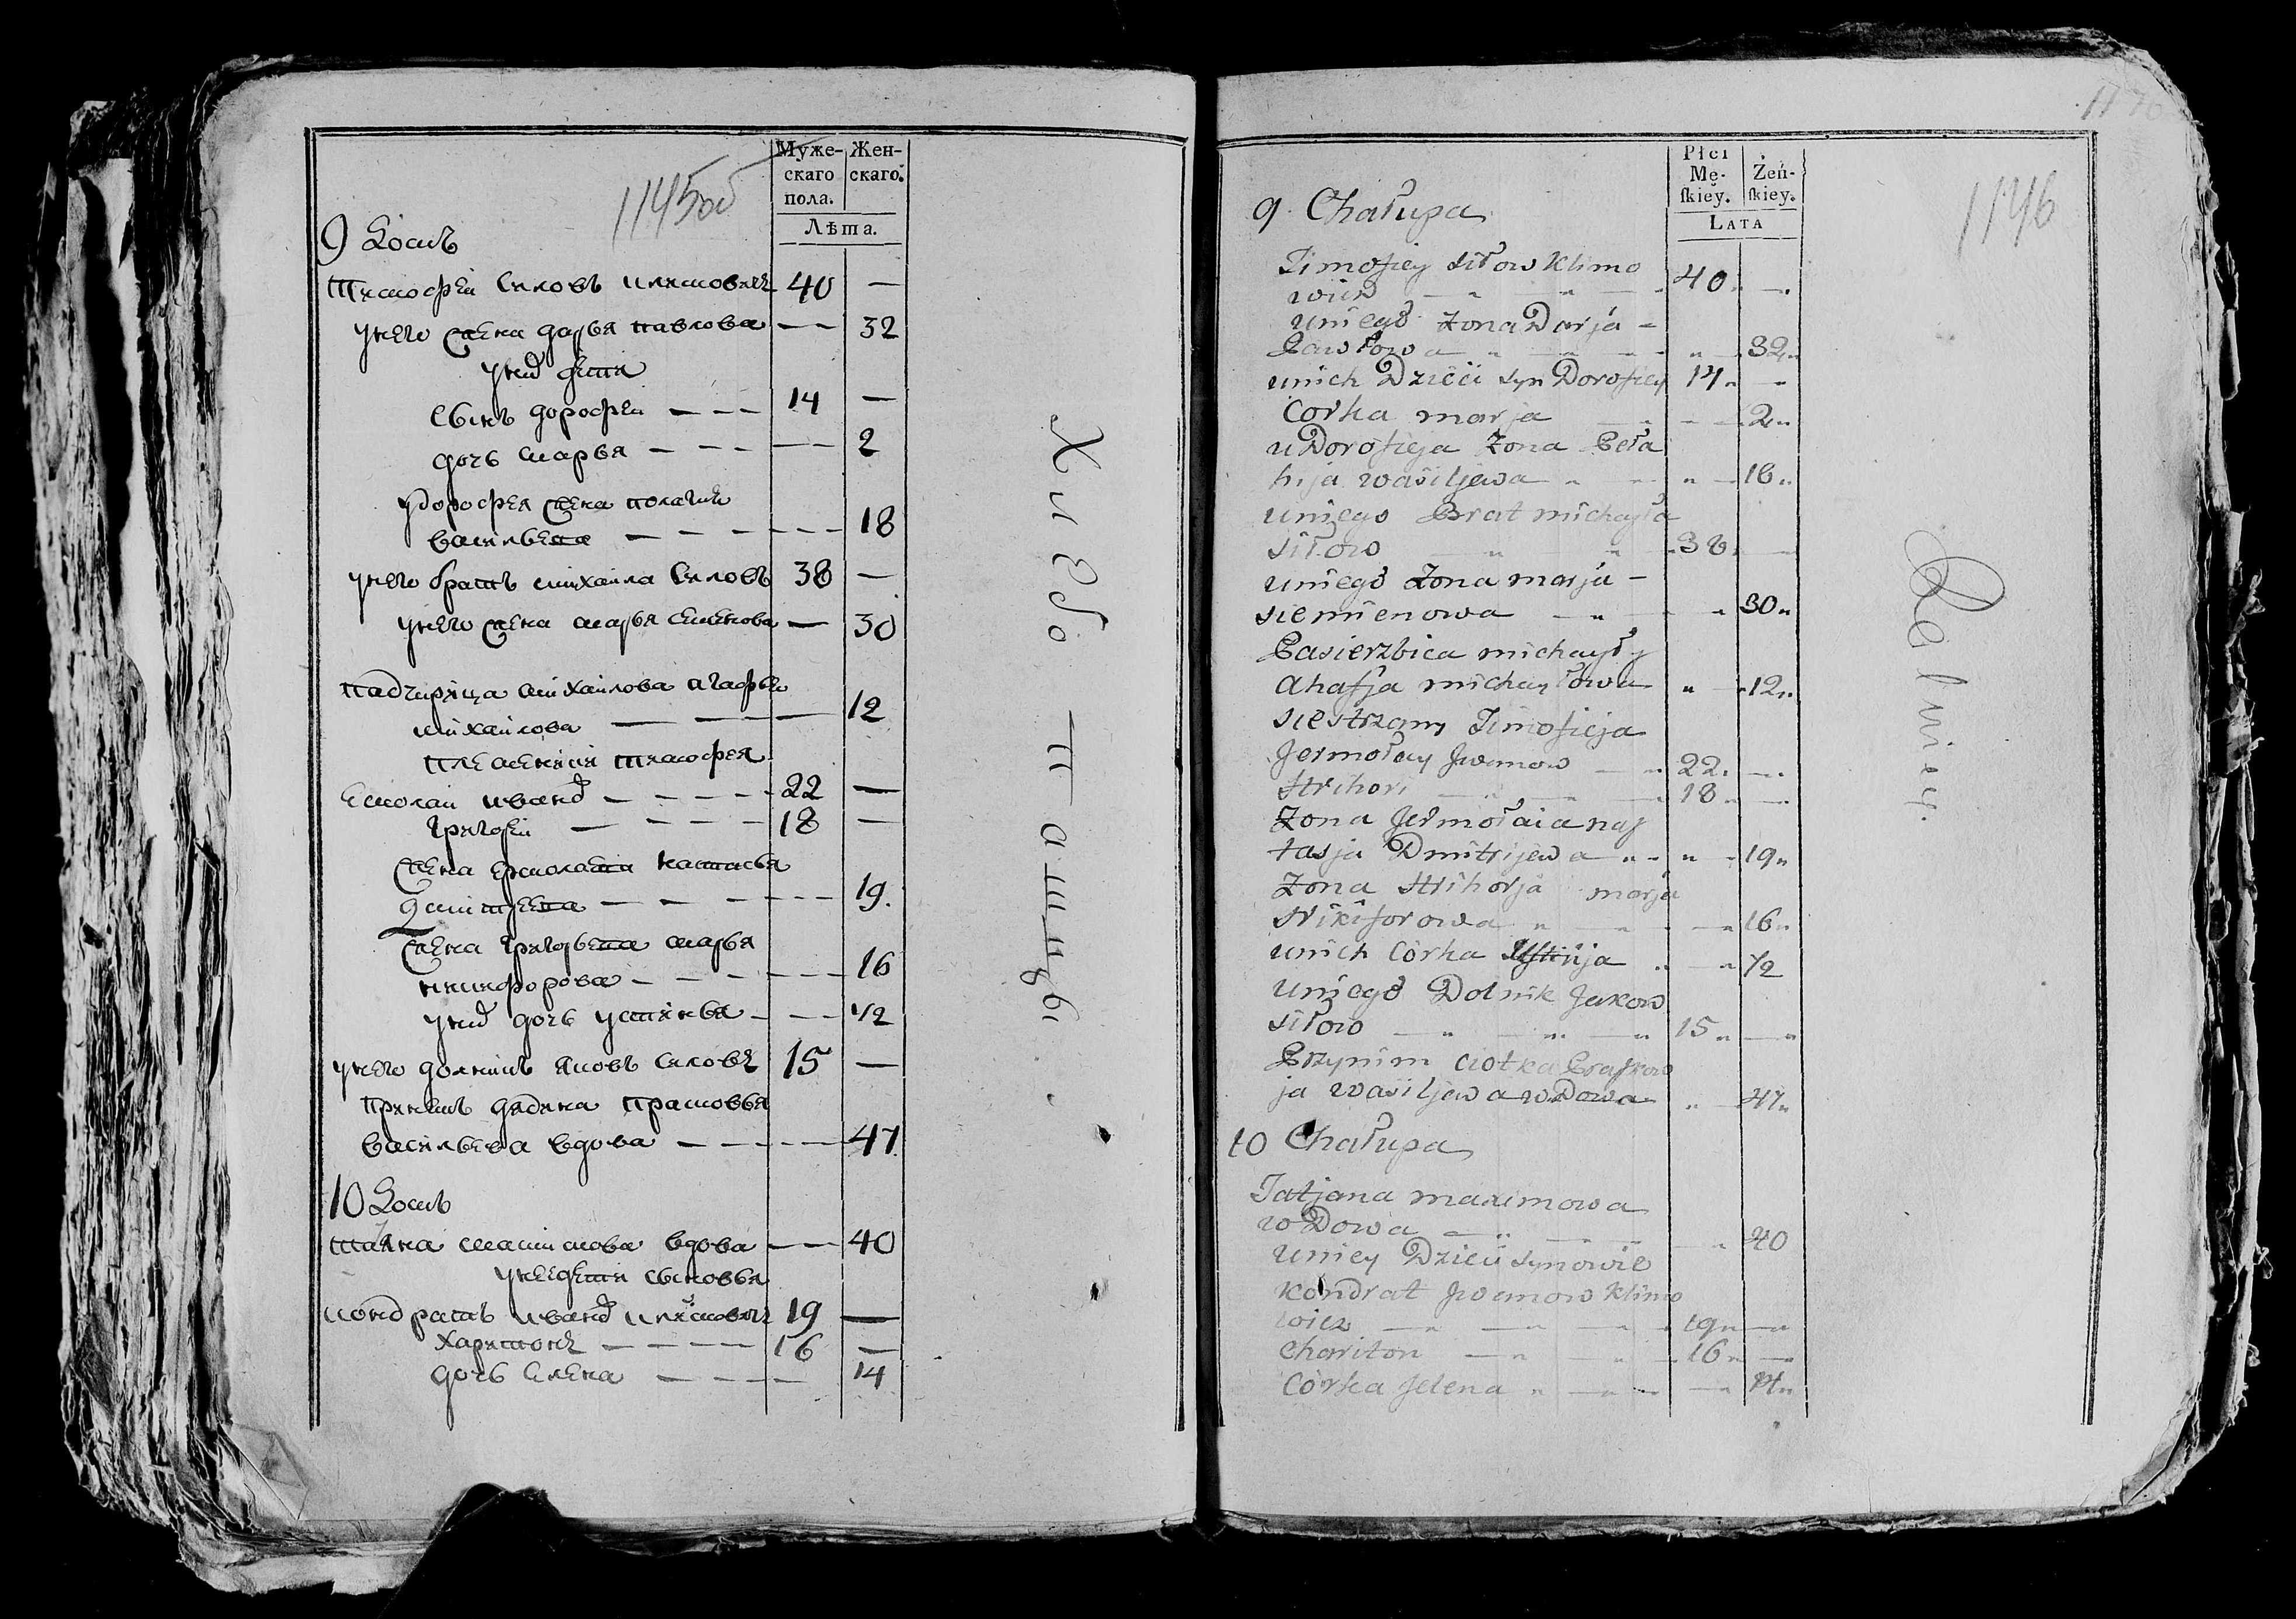 1145об
Муже- Жен-
скаго скаго.
пола.
Лѣта.
9 Домъ
Тимофей Силовъ Климовичъ 40 —
у него жена дарья павлова — — 32
у них дети
сынъ дорофеи — — — 14 —
дочь марья — — — — — 2
у дорофея жена полагия
васильева — — — — — — 18
у него братъ михаила Силовъ 38 —
у него жена марья семенова — 30
падчирица михаилова агафья
михаилова — — — — 12
племеники тимофея
Ермолаи иванов — — — — — 22 —
григореи — — — — — 18 —
жена ермолаева настасья
дмитреева — — — — — 19.
жена григорьева марья
никифорова — — — — — — 16
у них дочь устинья — — — 1/2
у него долникъ яковъ Силовъ 15 —
принемъ дядина прасковья
васильева вдова — — — — — 47.
10 Домъ
татяна максимова вдова — — 40
у нее дети сыновья
кондратъ иванов климовичъ 19 —
харитонъ — — — — 16 —
дочь елена — — — — — 14
Хлебо-пашцы.
1146
1146
Płci
Mę- Żeń-
ſkiey. ſkiey.
LATA
9 Chałupa
Timofiey siłow Klimo
wicz 40 „ —
uniego żona Darja -
Pawłowa „ — 32 „
unich Dzieci syn Dorofiey 14 „ —
Corka marja — 2 „
u Dorofieja żona Peła
hija wasiljewa „ — 18 „
uniego Brat michayła
siłow 38 „ —
uniego żona marja -
siemienowa „ 30 „
Pasierzbica michayły
ahafja michayłowa „ — 12 „
siestrzany Timofieja
Jermołay Jwanow — „ 22 „ —
Hrihori — 18 „ —
żona Jermołaia nas
tasja Dmitrijewa „ — 19 „
żona Hrihorja marja
Nikiforowa „ — 16 „
unich Córka Ustinja „ — 1/2
uniego Dolnik Jakow
siłow — „ 15 „ —
Przynim ciotka Praskow
ja wasiljewa wDowa „ — 47 „
10 Chałupa
Tatjana maximowa
wDowa — „ 40
uniey Dzieci synowie
Kondrat Jwanow Klimo
wicz — „ 19 „ —
Chariton — „ 16 „ —
Córka Jelena „ — 14 „
Rolniey.